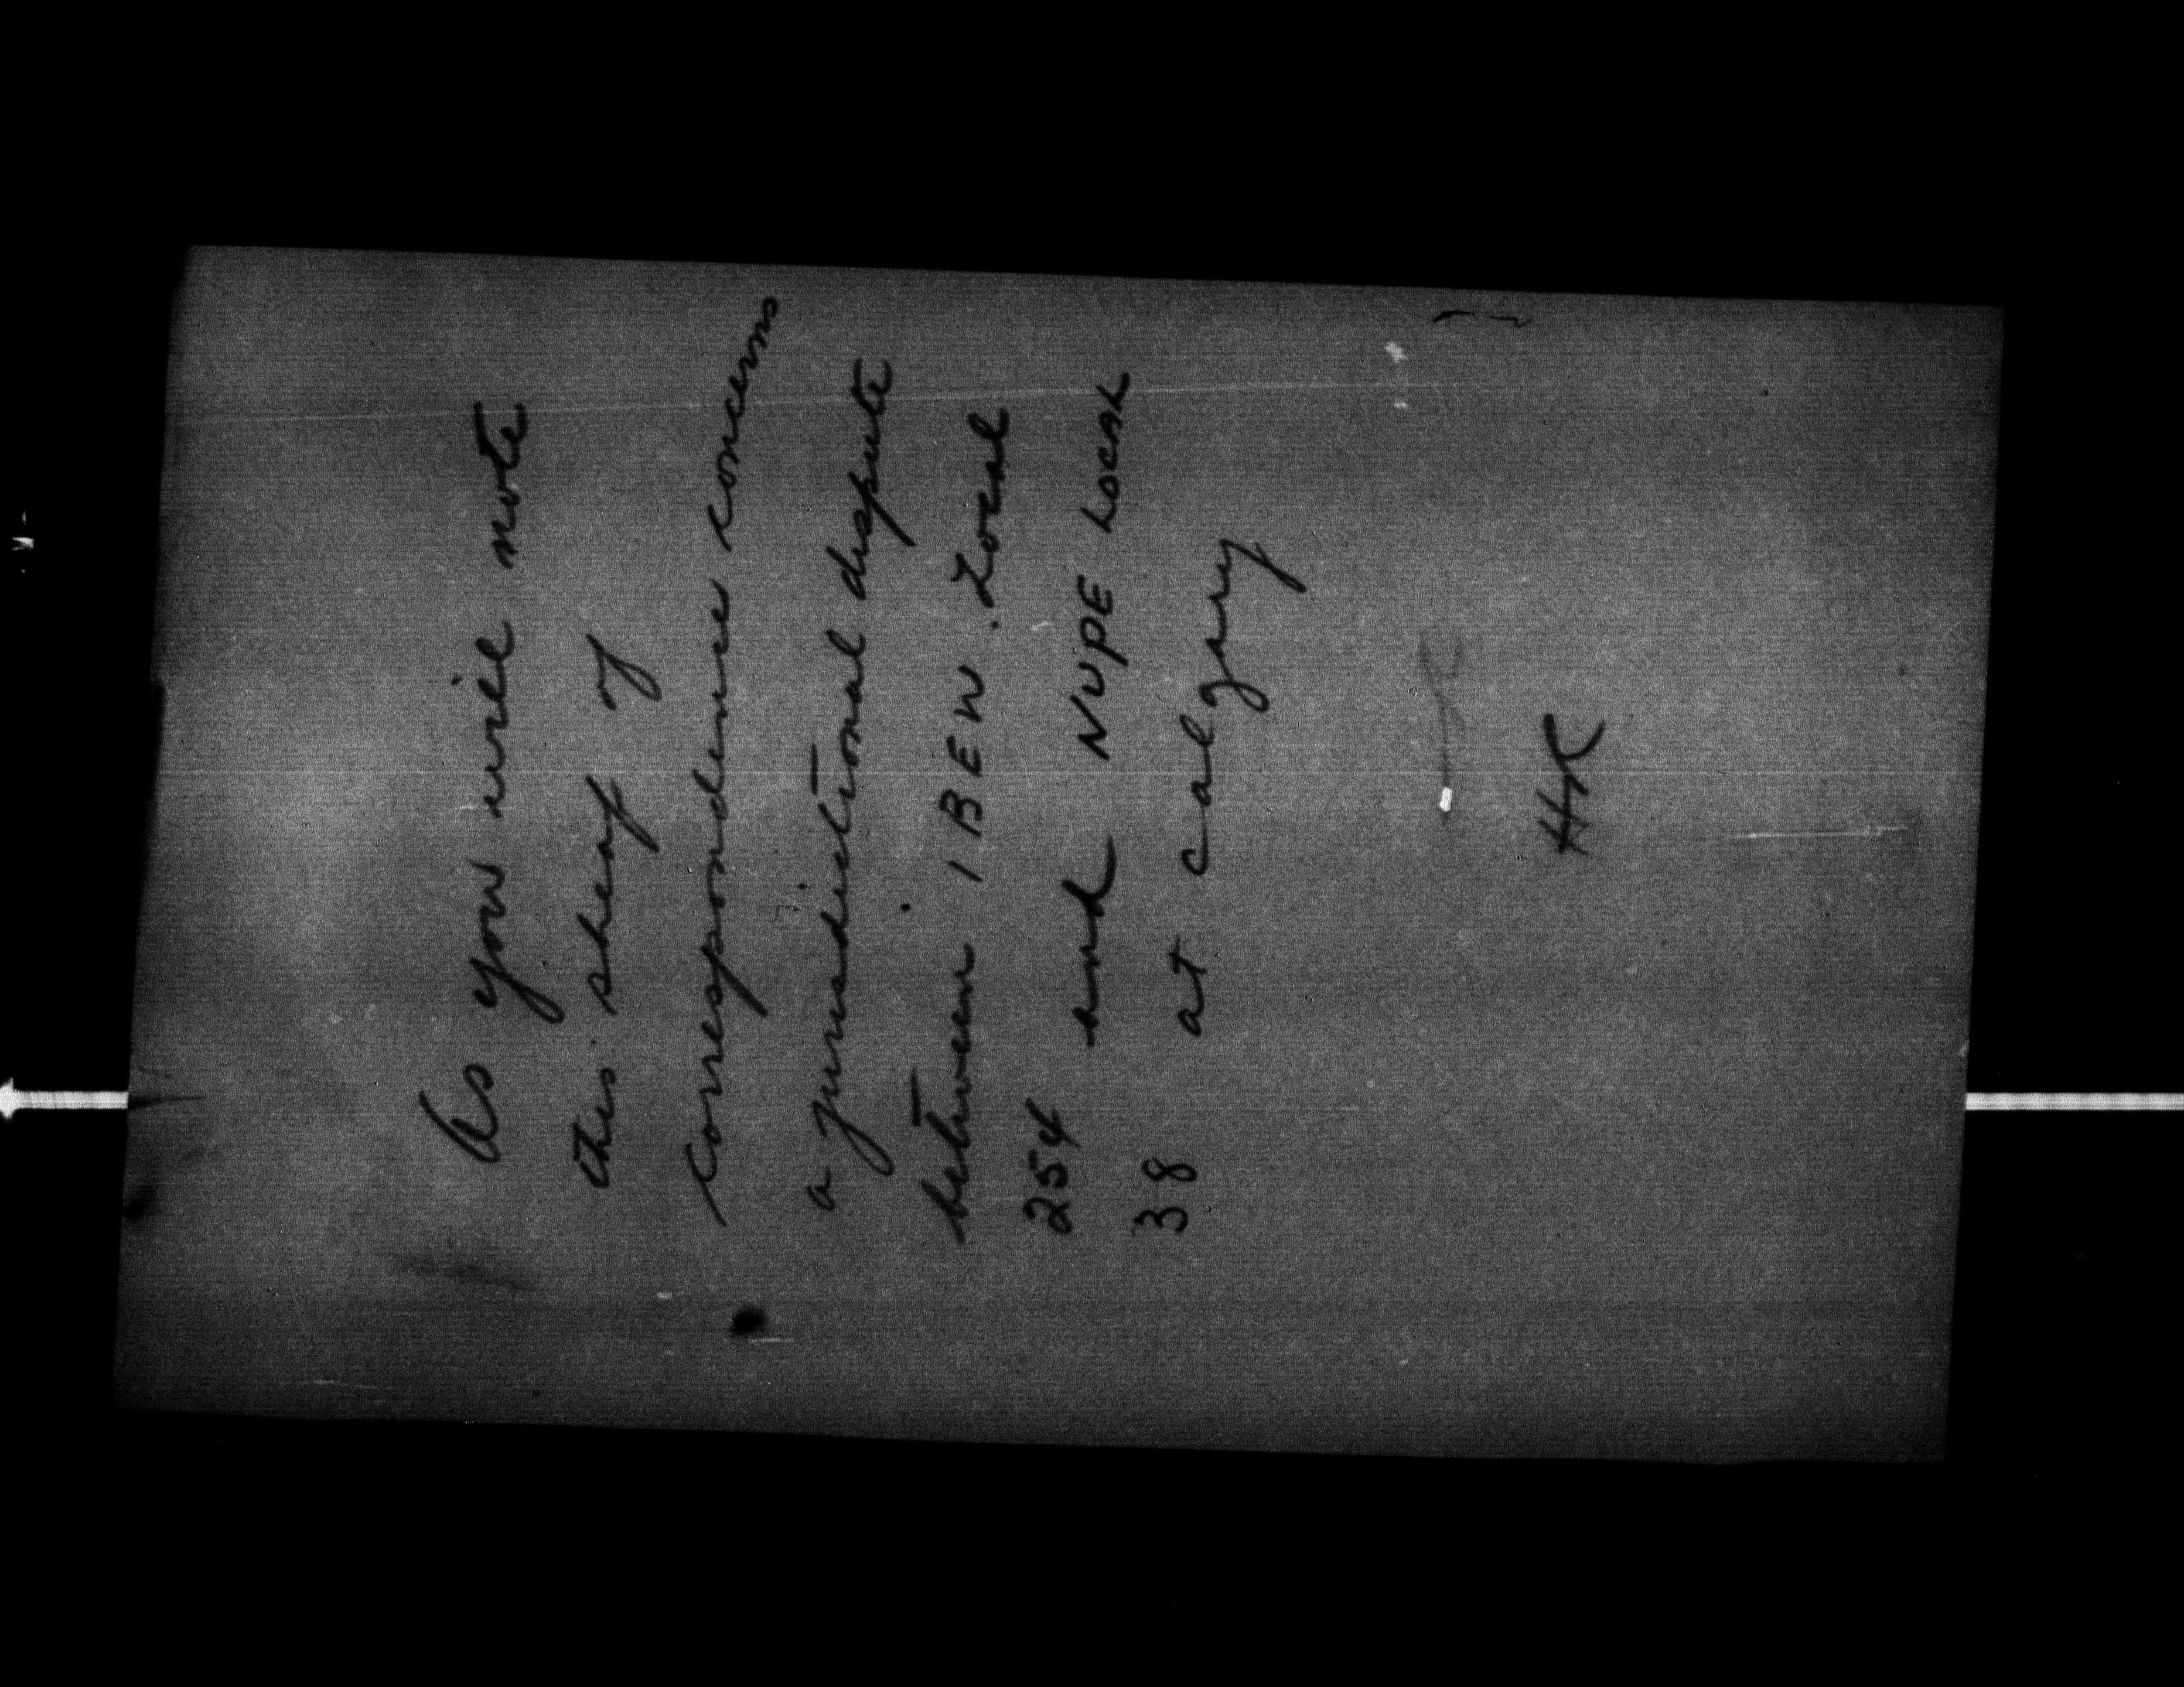 As you will note
this sheaf of
correspondence concerns
a jurisdictional dispute
between IBEW Local
254 and NUPE LOCAL
38 at Calgary
HK